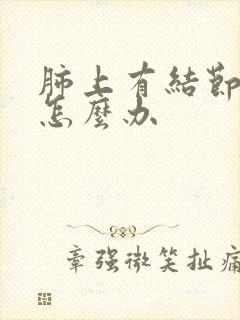 肺上有結節
怎麼办
章强微笑扯痛